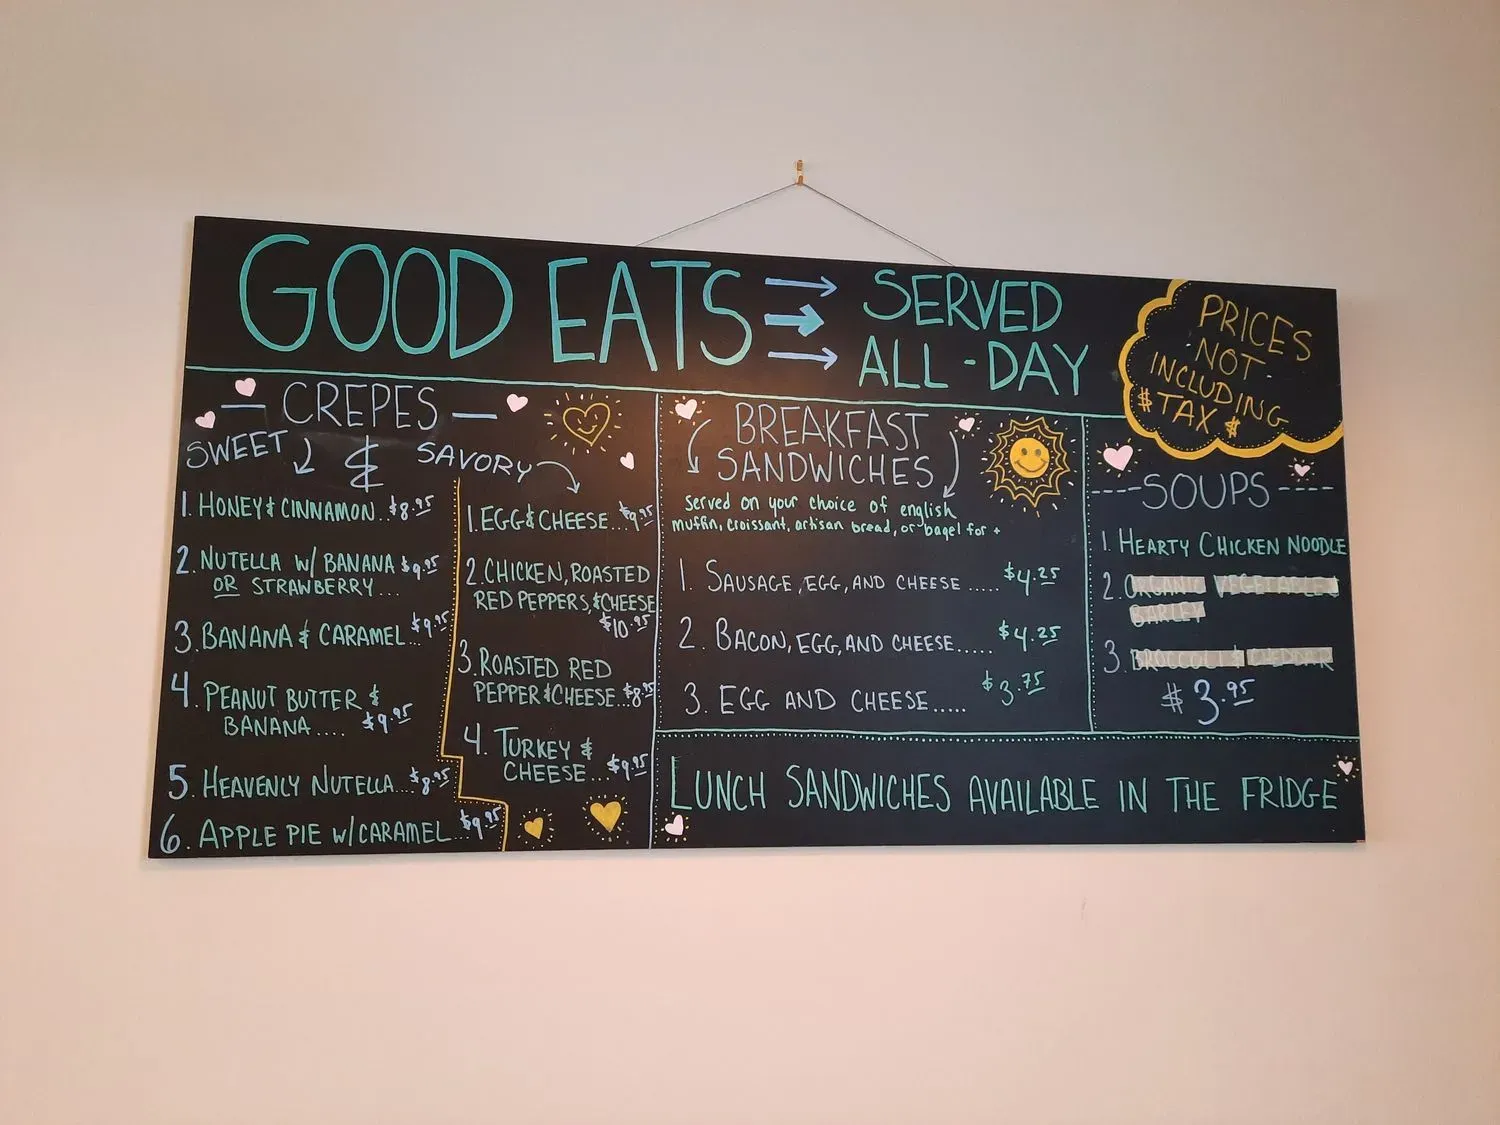 GOOD EATS
SERVED
ALL-DAY
PRICES
NOT
INCLUDING
$TAX$
CREPES
SWEET & SAVORY
1. HONEY & CINNAMON..$8.95
2. NUTELLA W/ BANANA $9.95
OR STRAWBERRY...
3. BANANA & CARAMEL..$9.95
4. PEANUT BUTTER &
BANANA.... $9.95
5. HEAVENLY NUTELLA...$8.95
6. APPLE PIE W/CARAMEL..$9.95
1. EGG & CHEESE...$9.95
2. CHICKEN, ROASTED
RED PEPPERS, & CHEESE
$10.95
3. ROASTED RED
PEPPER & CHEESE...$8.95
4. TURKEY &
CHEESE...$9.95
BREAKFAST
SANDWICHES
Served on your choice of english
muffin, croissant, artisan bread, or bagel for +
1. SAUSAGE, EGG, AND CHEESE..... $4.25
2. BACON, EGG, AND CHEESE..... $4.25
3. EGG AND CHEESE..... $3.75
----SOUPS----
1. HEARTY CHICKEN NOODLE
2. ORGANIC VEGETABLE &
BARLEY
3. BROCCOLI & CHEDDAR
$3.95
LUNCH SANDWICHES AVAILABLE IN THE FRIDGE